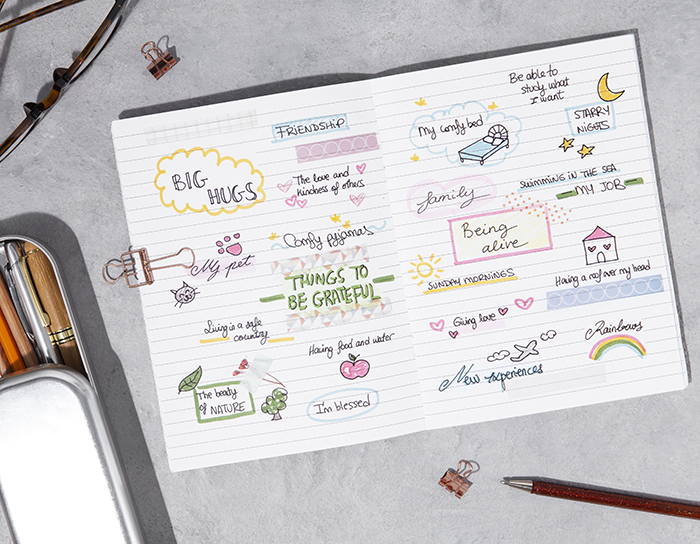 FRIENDSHIP
BIG
HUGS
The love and
kindness of others
My pet
Comfy pyjamas
THINGS TO
BE GRATEFUL
Living is a safe
country
Having food and water
The beauty
of NATURE
I'm blessed
Be able to
study what
I want
My comfy bed
STARRY
NIGHTS
family
SWIMMING IN THE SEA
MY JOB
Being
alive
SUNDAY MORNINGS
Having a roof over my head
Giving love
Rainbows
New experiences